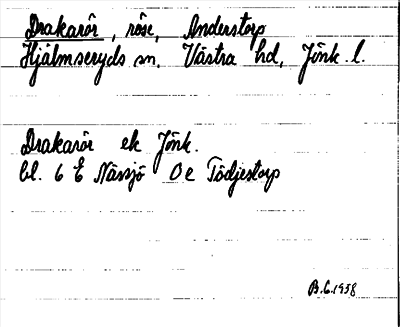 Drakarör, röse, Anderstorp
Hjälmseryds sn, Västra hd, Jönk. l.
Drakarör ek Jönk.
bl. 6 E Nässjö 0 e Tödjestorp
B.G. 1958